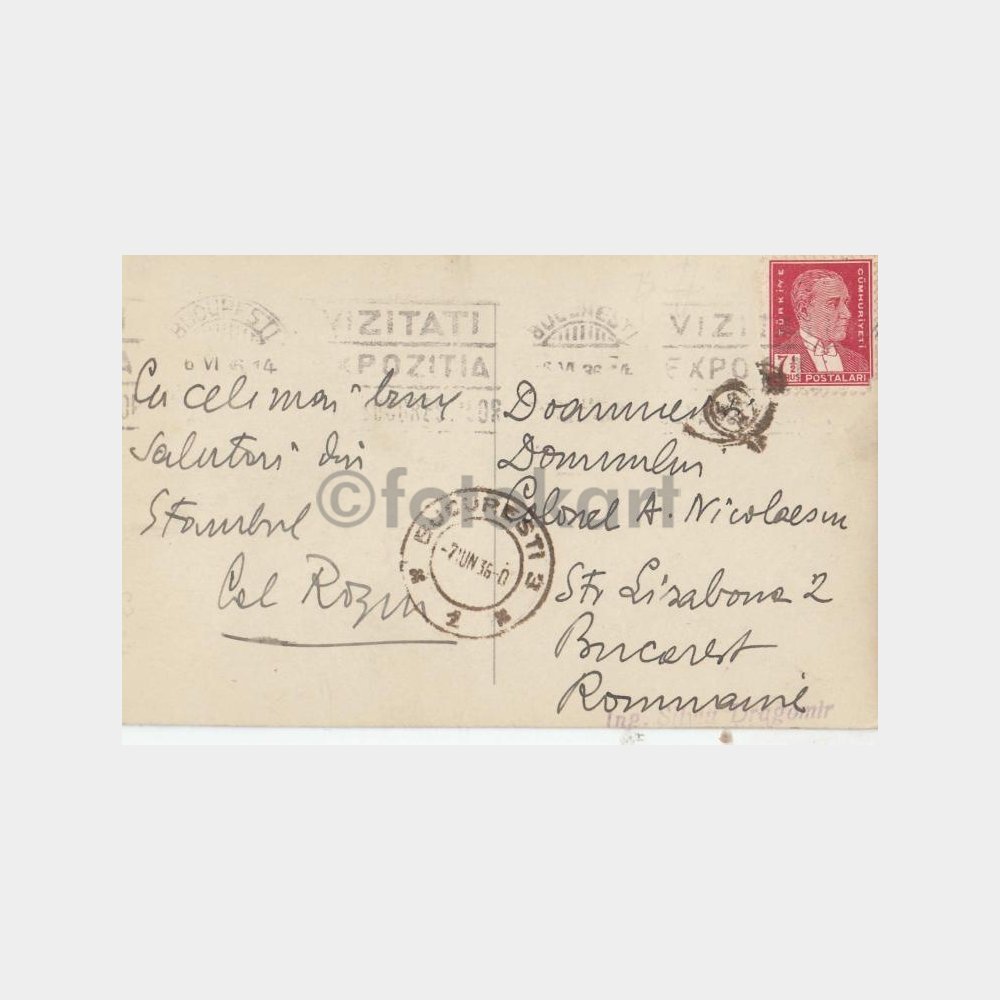 BUCUREȘTI
6 VI 36 14
VIZITATI
EXPOZITIA
BUCUREȘTI
6 VI 36 14
VIZI
EXPO
TÜRKİYE
CÜMHURİYETİ
7½
POSTALARI
Cu cele mai bune
salutari din
Stambul
Col
Doamnei
Domnului
Colonel A. Nicolaescu
Str Lisabona 2
Bucarest
Roumanie
©fotokart
BUCUREȘTI 3
-7 IUN 36-
2
Ing. Dragomir